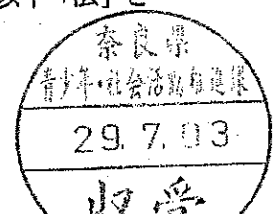 奈良県
青少年・社会活動推進課
29.7.03
収受